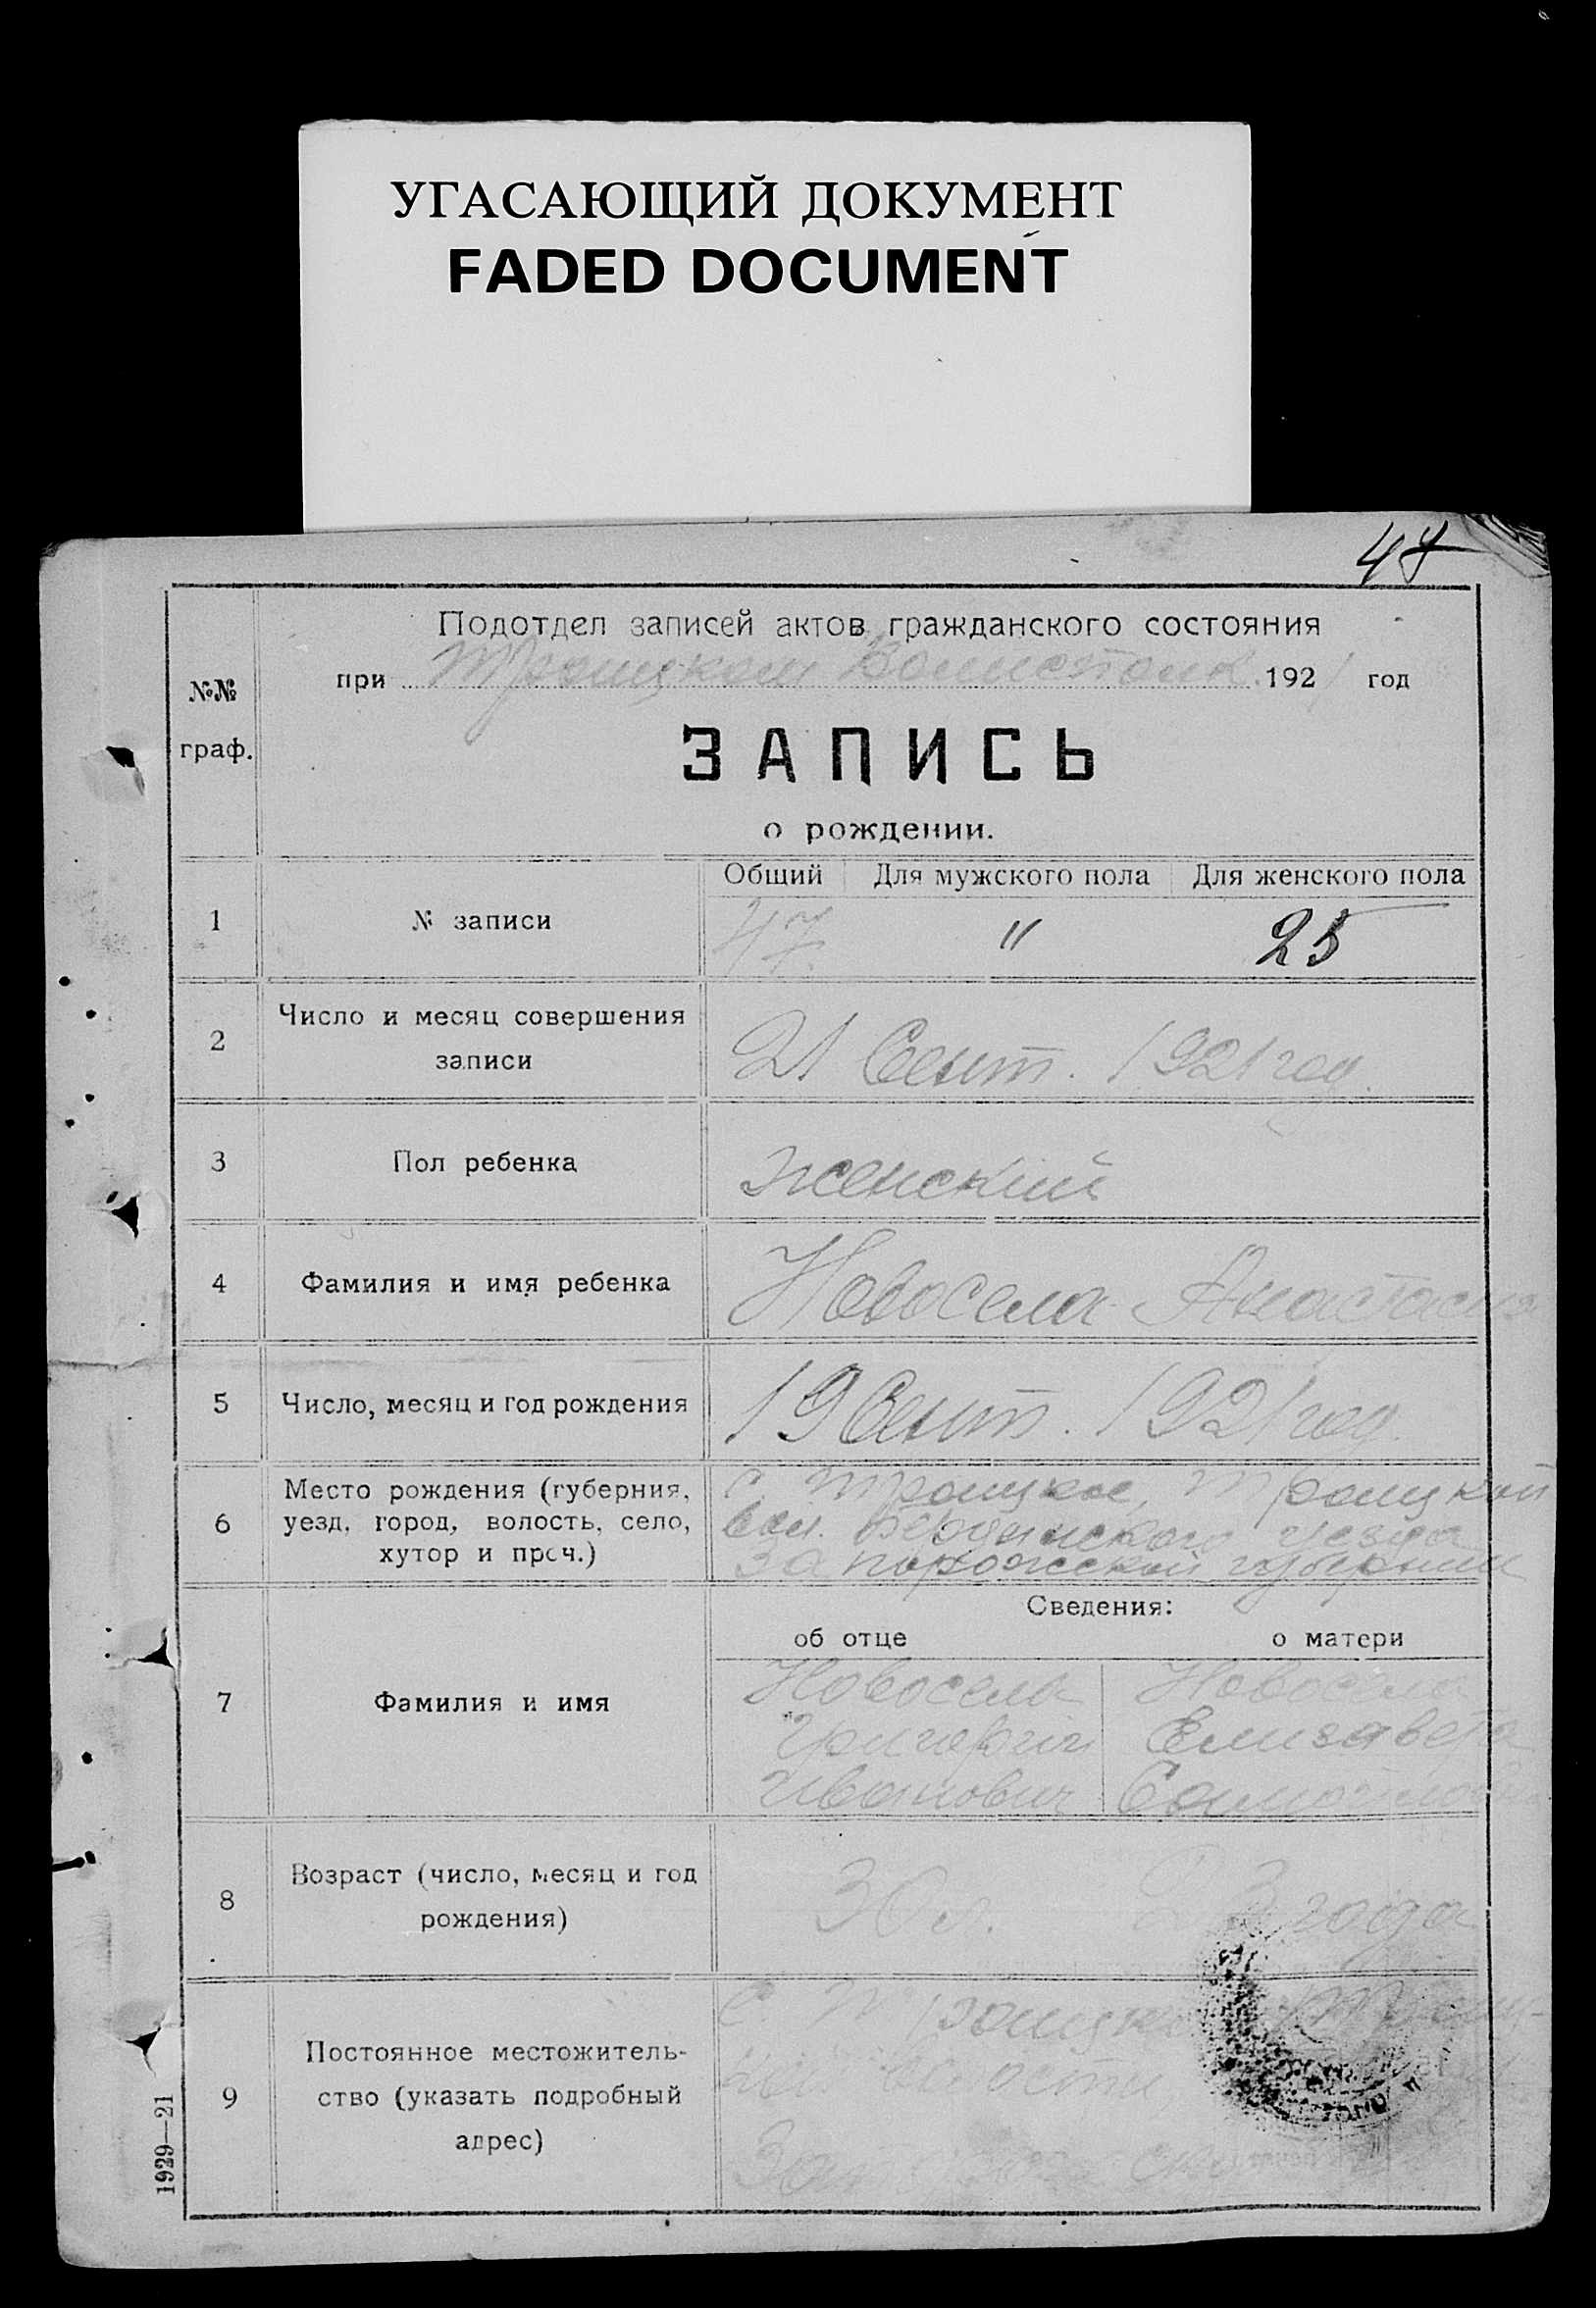 УГАСАЮЩИЙ ДОКУМЕНТ
FADED DOCUMENT
47
Подотдел записей актов гражданского состояния
при Троицком Волисполк. 1921 год
№№
граф.
ЗАПИСЬ
о рождении.
Общий Для мужского пола Для женского пола
1 № записи 47. " 25
2 Число и месяц совершения
записи
21 Сент. 1921 год.
3 Пол ребенка женский
4 Фамилия и имя ребенка Новосела Анастасия
5 Число, месяц и год рождения 19 Сент. 1921 год.
6 Место рождения (губерния,
уезд, город, волость, село,
хутор и проч.)
с. Троицкое, Троицкой
вол. Бердянского уезда
Запорожской губернии
Сведения:
об отце о матери
7 Фамилия и имя
Новосела Новосела
Григорий Елизавета
Иванович
8 Возраст (число, месяц и год
рождения)
года
9 Постоянное местожитель-
ство (указать подробный
адрес)
с.
волости
1929—21